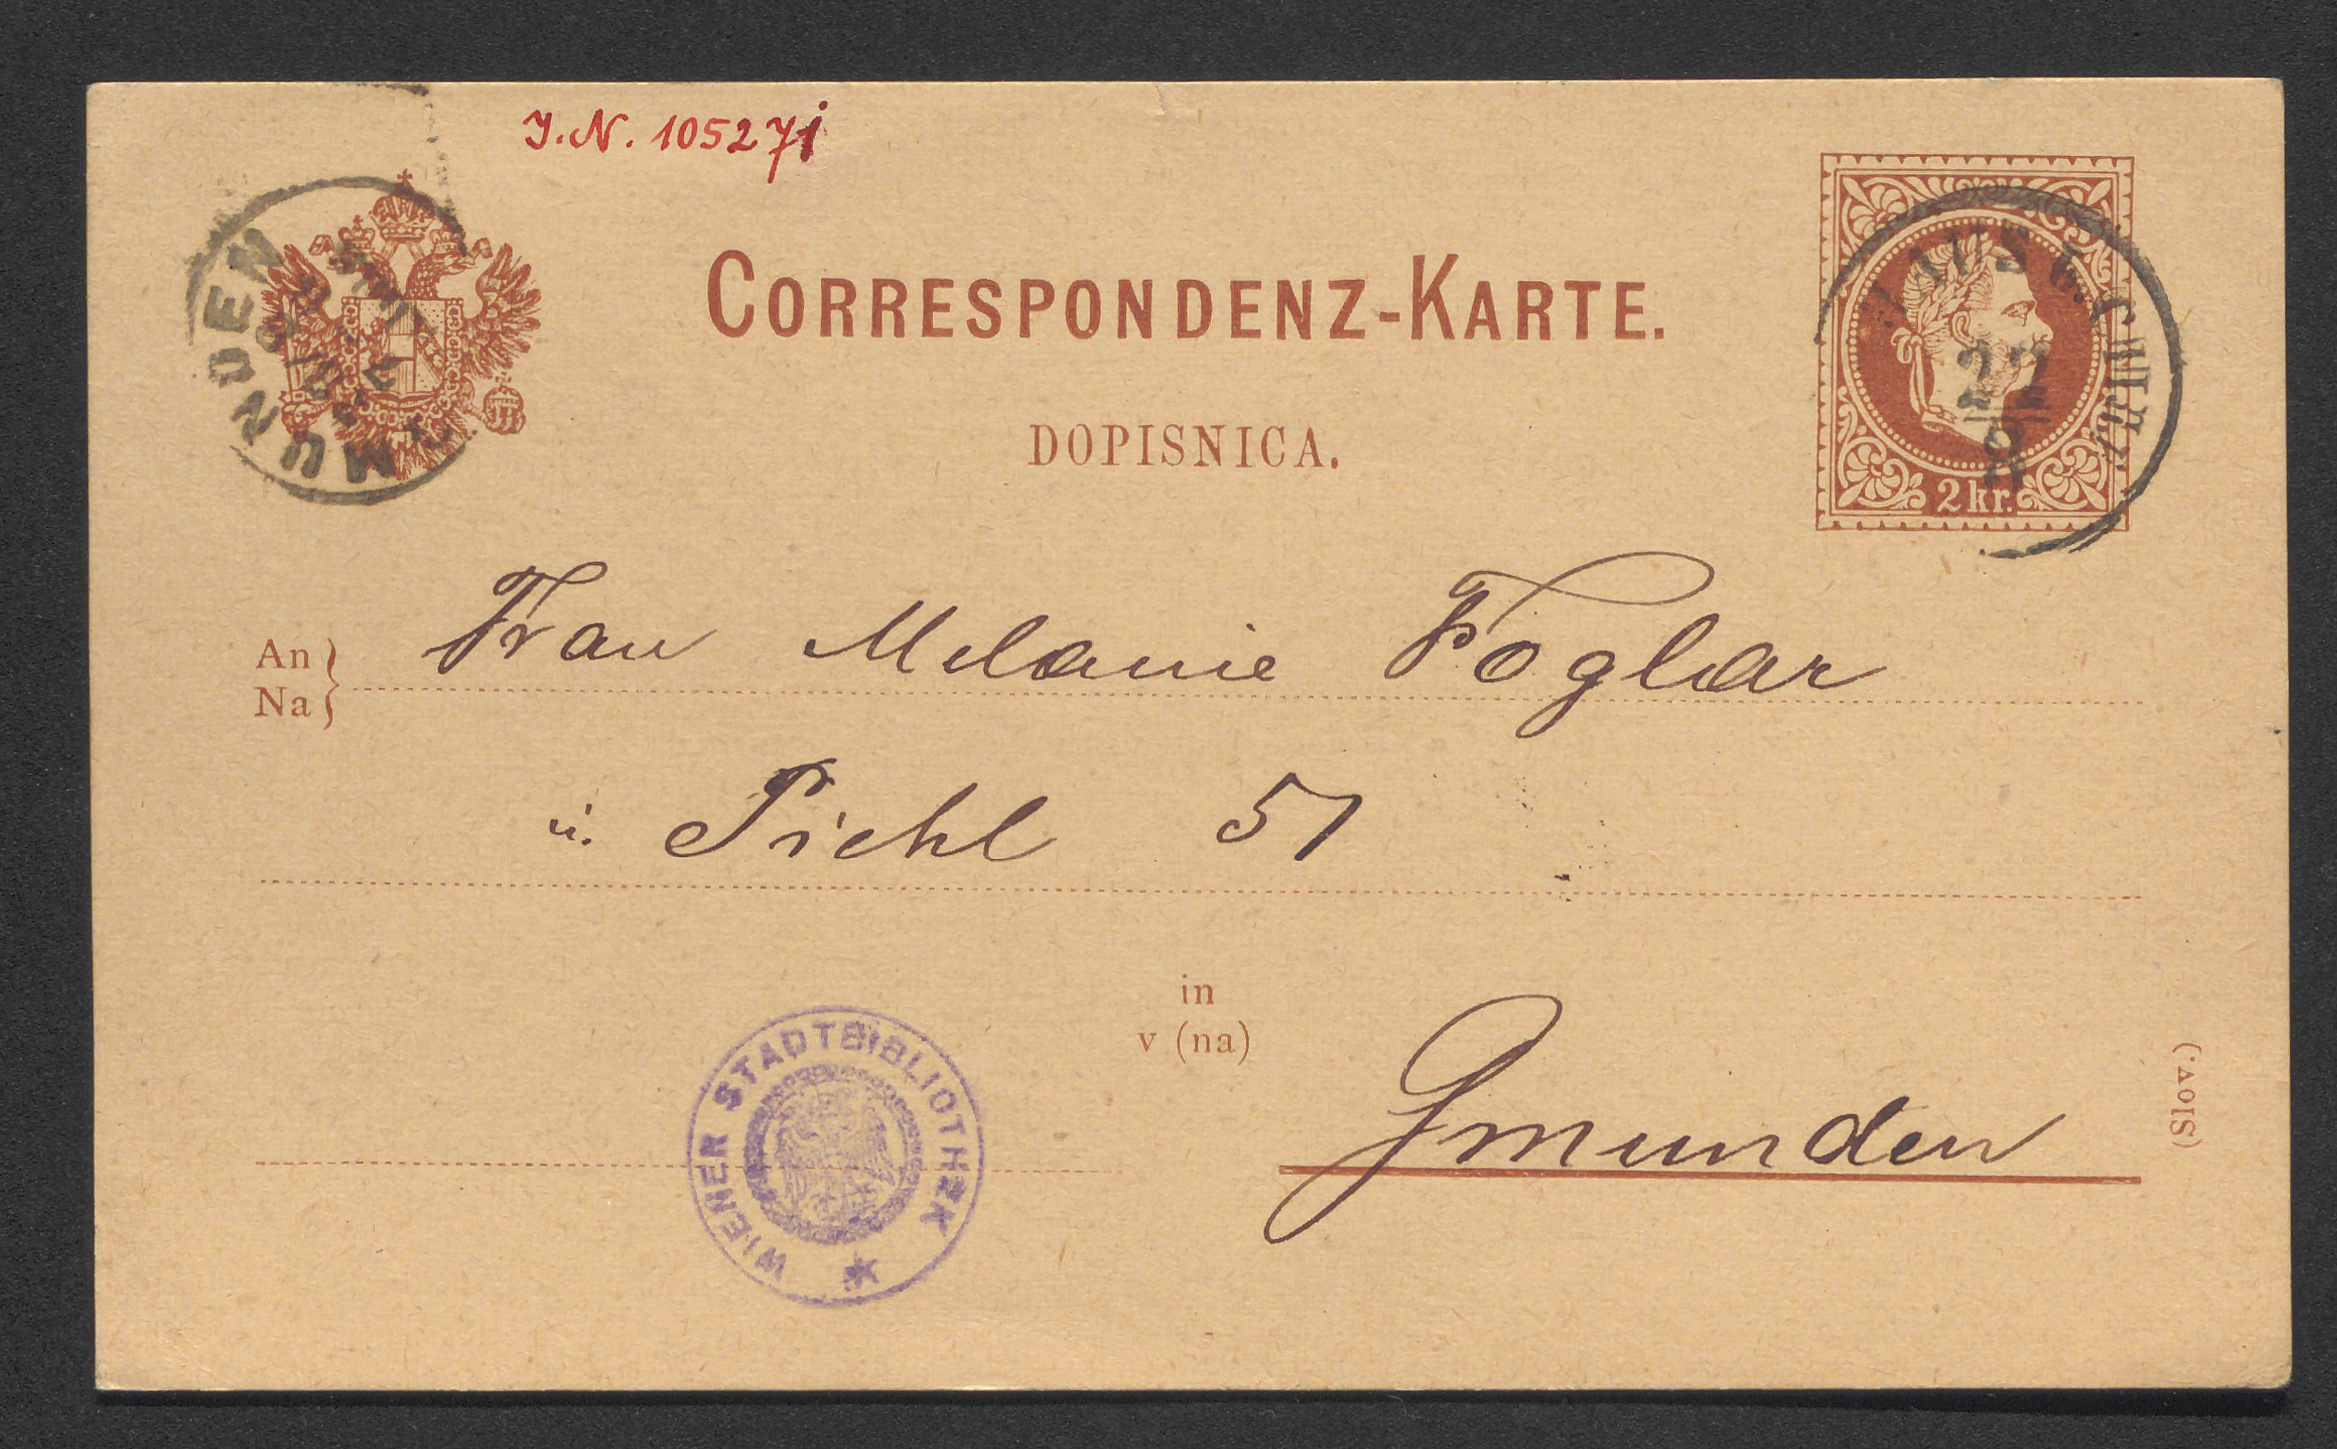 J.N. 105271
GMUNDEN
CORRESPONDENZ-KARTE.
DOPISNICA.
27
8
2 kr.
An
Na
Frau Melanie Foglar
u. Pichl 51
in
v (na)
Gmunden
(Slov.)
WIENER STADTBIBLIOTHEK